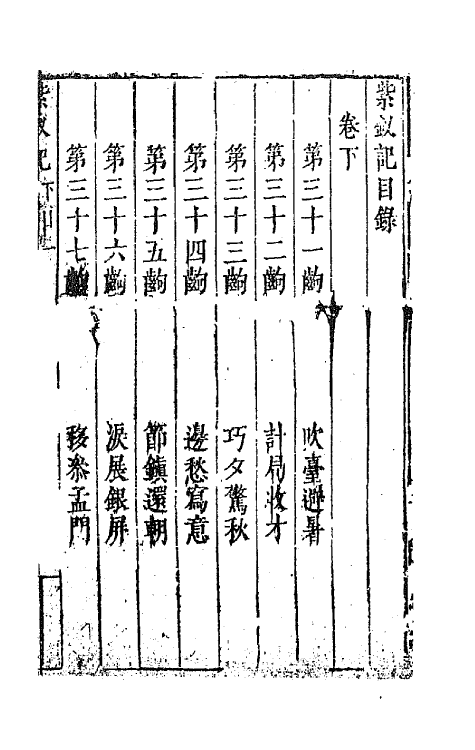 紫釵記目錄
卷下
第三十一齣 吹臺避暑
第三十二齣 計局收才
第三十三齣 巧夕驚秋
第三十四齣 邊愁寫意
第三十五齣 節鎮還朝
第三十六齣 淚展銀屏
第三十七齣 移參孟門
紫釵記